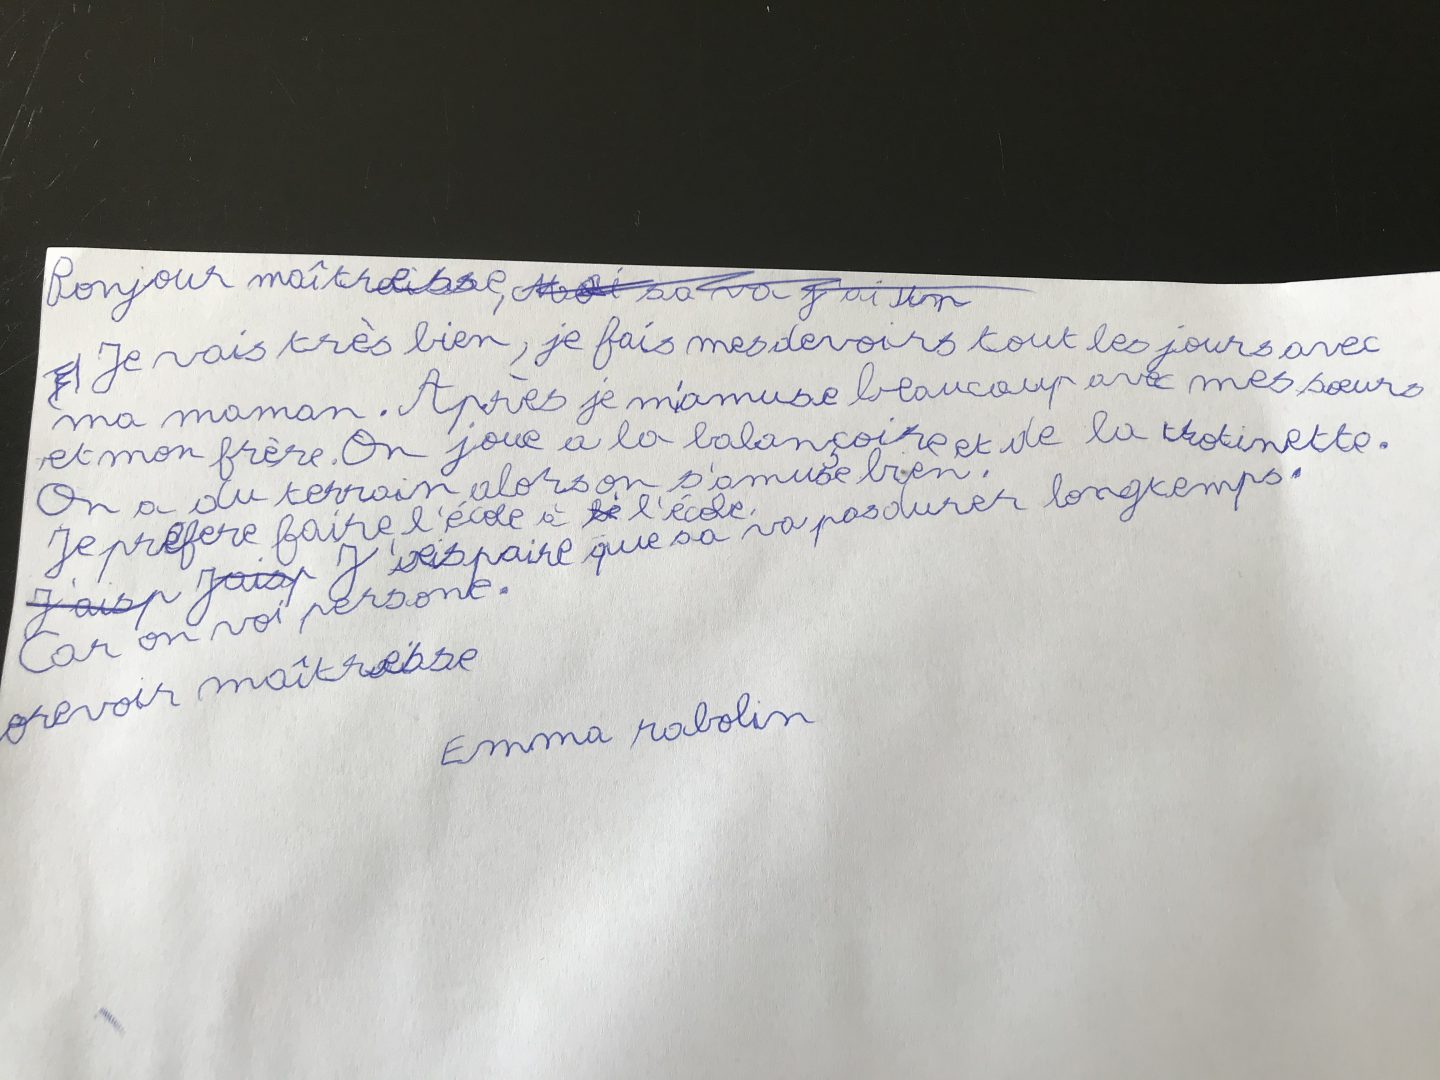 Bonjour maîtresse, Moi sa va j'ai
Je vais très bien, je fais mes devoirs tout les jours avec
ma maman. Après je m'amuse beaucoup avec mes sœurs
et mon frère. On joue a la balançoire et de la trotinette.
On a du terrain alors on s'amuse bien.
Je prefere faire l'école à l'école.
J'aisp Jaisp J'éispaire que sa va pas durer longtemps.
Car on voi persone.
orevoir maîtresse
Emma rabolin